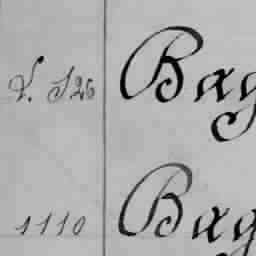 V. 526 Bag
1110 Bag